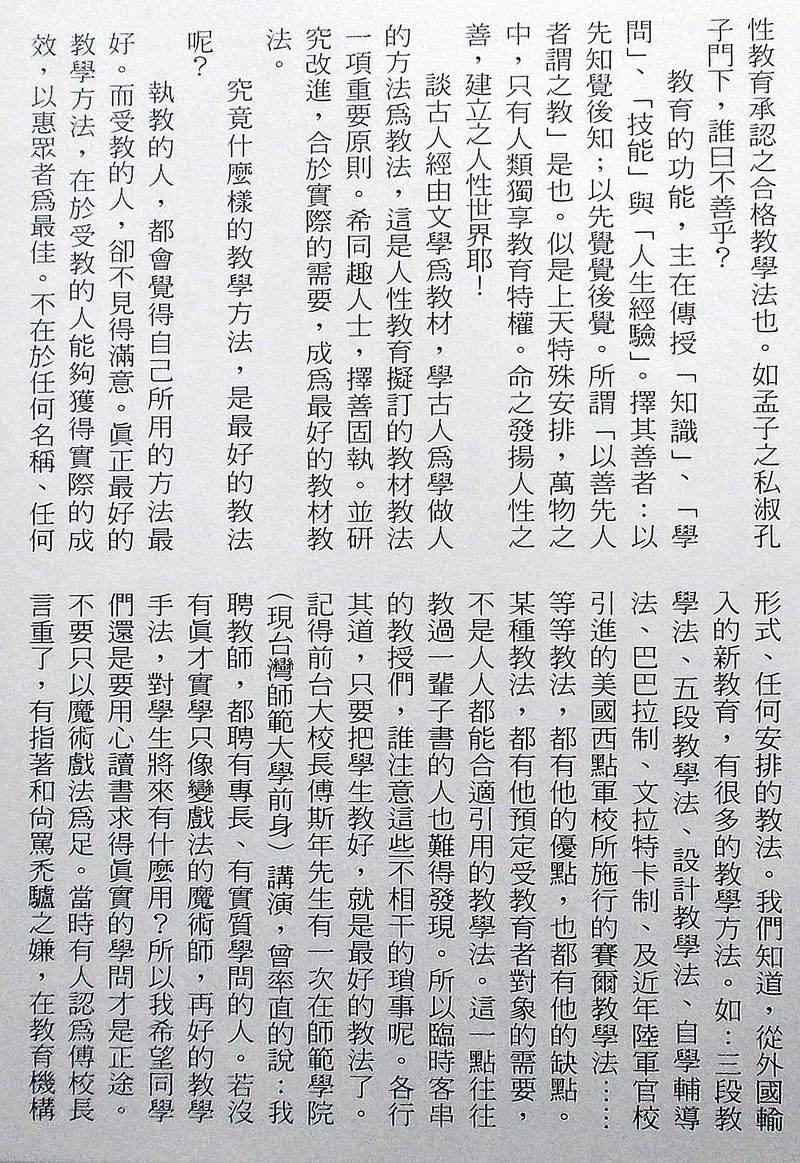 性教育承認之合格教學法也。如孟子之私淑孔
子門下，誰曰不善乎？
教育的功能，主在傳授「知識」、「學
問」、「技能」與「人生經驗」。擇其善者：以
先知覺後知；以先覺覺後覺。所謂「以善先人
者謂之教」是也。似是上天特殊安排，萬物之
中，只有人類獨享教育特權。命之發揚人性之
善，建立之人性世界耶！
談古人經由文學爲教材，學古人爲學做人
的方法爲教法，這是人性教育擬訂的教材教法
一項重要原則。希同趣人士，擇善固執。並研
究改進，合於實際的需要，成爲最好的教材教
法。
究竟什麼樣的教學方法，是最好的教法
呢？
執教的人，都會覺得自己所用的方法最
好。而受教的人，卻不見得滿意。眞正最好的
教學方法，在於受教的人能夠獲得實際的成
效，以惠眾者爲最佳。不在於任何名稱、任何
形式、任何安排的教法。我們知道，從外國輸
入的新教育，有很多的教學方法。如：三段教
學法、五段教學法、設計教學法、自學輔導
法、巴巴拉制、文拉特卡制、及近年陸軍官校
引進的美國西點軍校所施行的賽爾教學法……
等等教法，都有他的優點，也都有他的缺點。
某種教法，都有他預定受教育者對象的需要，
不是人人都能合適引用的教學法。這一點往往
教過一輩子書的人也難得發現。所以臨時客串
的教授們，誰注意這些不相干的瑣事呢。各行
其道，只要把學生教好，就是最好的教法了。
記得前台大校長傅斯年先生有一次在師範學院
（現台灣師範大學前身）講演，曾率直的說：我
聘教師，都聘有專長、有實質學問的人。若沒
有眞才實學只像變戲法的魔術師，再好的教學
手法，對學生將來有什麼用？所以我希望同學
們還是要用心讀書求得眞實的學問才是正途。
不要只以魔術戲法爲足。當時有人認爲傅校長
言重了，有指著和尙罵禿驢之嫌，在教育機構